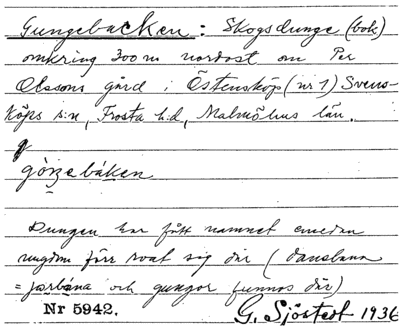 Gungebacken: Skogsdunge (bok)
omkring 300 m nordost om Per
Olssons gård i Östensköp (nr 1) Svens-
köps s:n, Frosta h:d, Malmöhus län.
Dungen har fått namnet emedan
ungdom förr roat sig där (dansbana
= och gungor funnos där)
Nr 5942.
G. Sjöstedt 1936